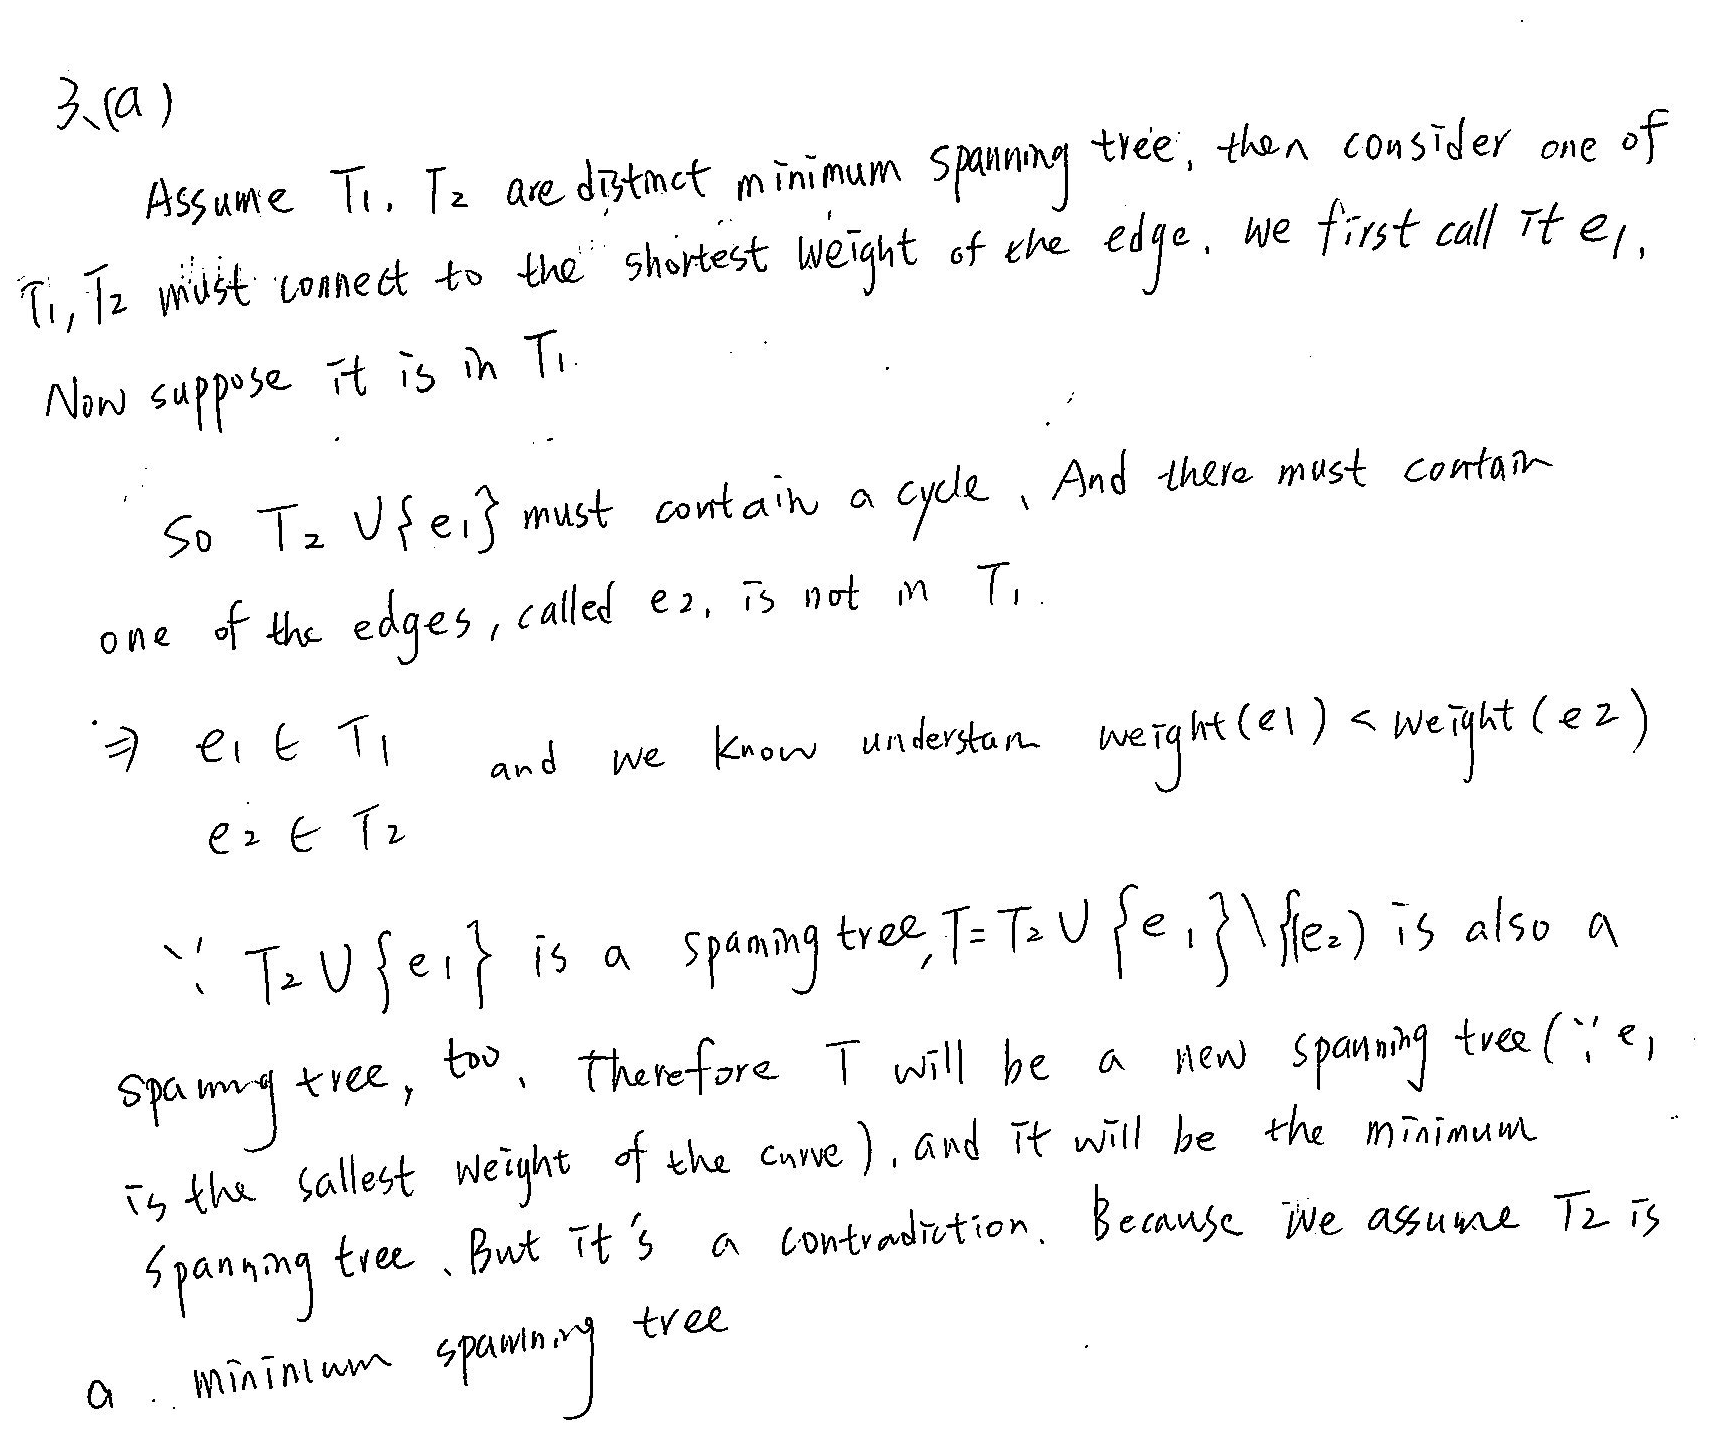 3.(a)
Assume T1, T2 are distinct minimum spanning tree, then consider one of
T1, T2 must connect to the shortest weight of the edge, we first call it e1,
Now suppose it is in T1.
So T2 ∪ {e1} must contain a cycle, And there must contain
one of the edges, called e2, is not in T1.
⇒ e1 ∈ T1 and we know understan weight(e1) < weight(e2)
e2 ∈ T2
∵ T2 ∪ {e1} is a spanning tree, T = T2 ∪ {e1} \ {e2) is also a
spanning tree, too, Therefore T will be a new spanning tree (∵ e1
is the sallest weight of the curve), and it will be the minimum
spanning tree. But it's a contradiction. Because we assume T2 is
a minimum spanning tree